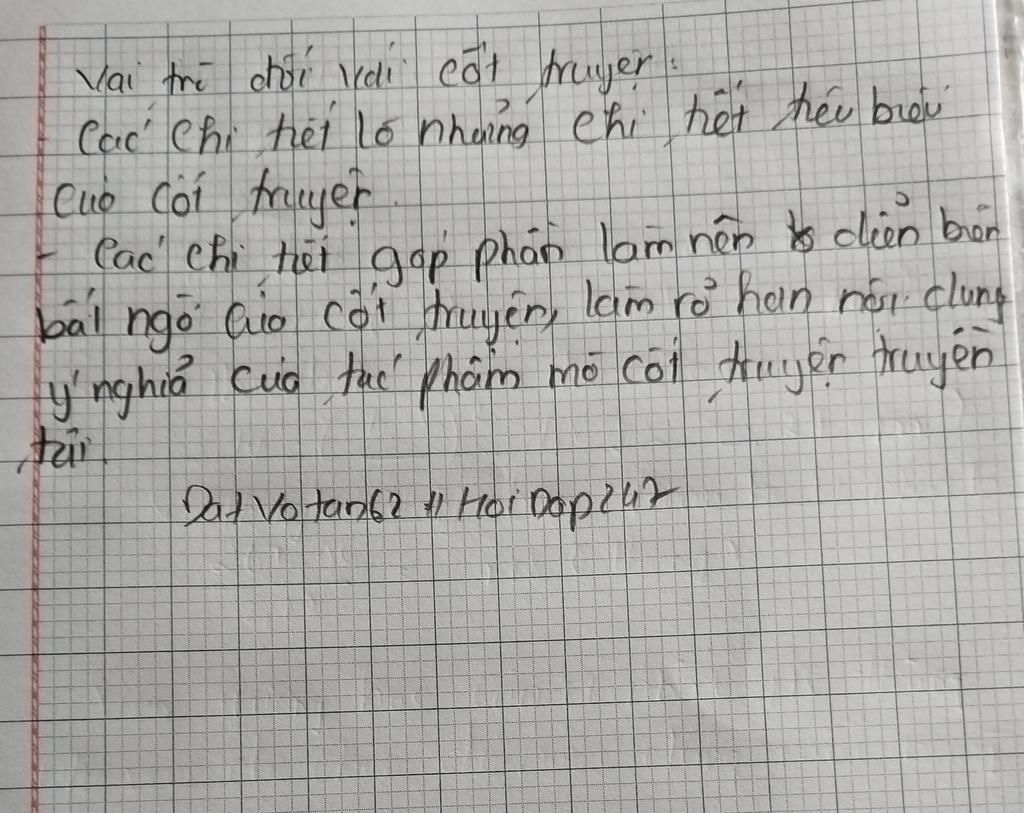 Vai trò đối với cốt truyện:
- Các chi tiết là những chi tiết tiêu biểu
của cốt truyện.
- Các chi tiết góp phần làm nên diễn biến
bất ngờ của cốt truyện, làm rõ hơn nội dung
ý nghĩa của tác phẩm mà cốt truyện truyền
tải.
DatVotan62 // HoiDap247